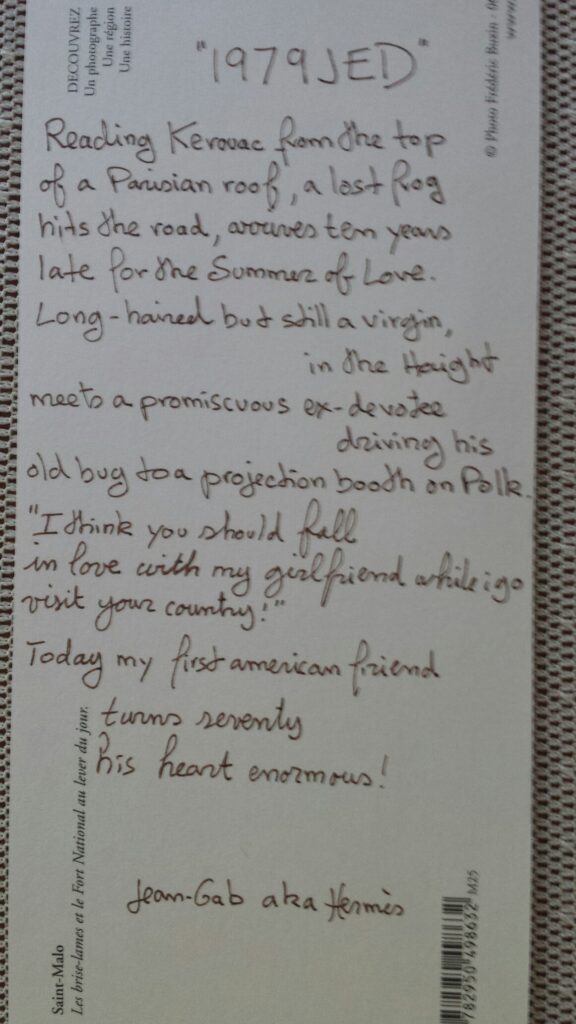 DECOUVREZ
Un photographe
Une région
Une histoire
"1979JED"
© Photo Frédéric Buxin
www.
Reading Kerouac from the top
of a Parisian roof, a lost frog
hits the road, arrives ten years
late for the Summer of Love.
Long-haired but still a virgin,
in the Haight
meets a promiscuous ex-devotee
driving his
old bug to a projection booth on Polk.
"I think you should fall
in love with my girlfriend while i go
visit your country!"
Today my first american friend
turns seventy
his heart enormous!
Jean-Gab aka Hermès
Saint-Malo
Les brise-lames et le Fort National au lever du jour.
782950 498632
M25